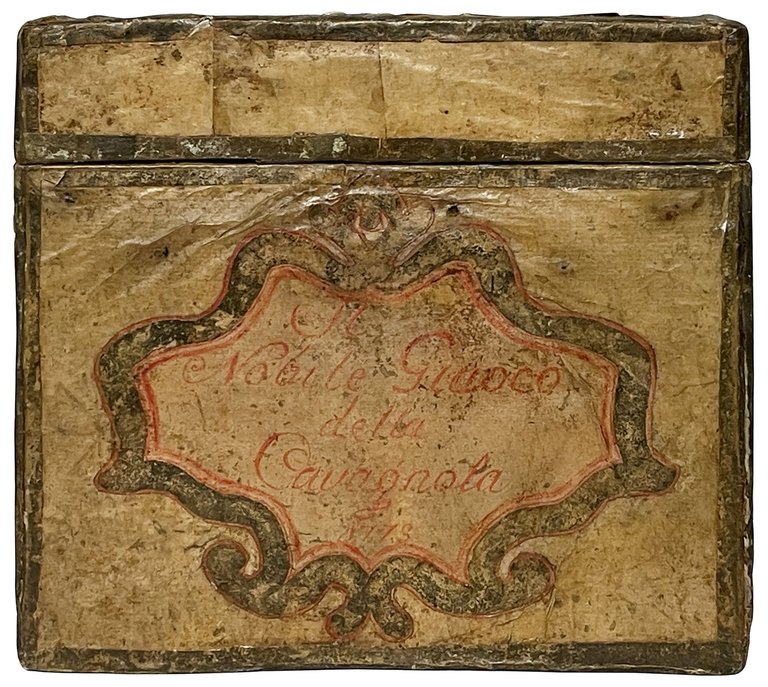 Il
Nobile Giuoco
della
Cavagnola